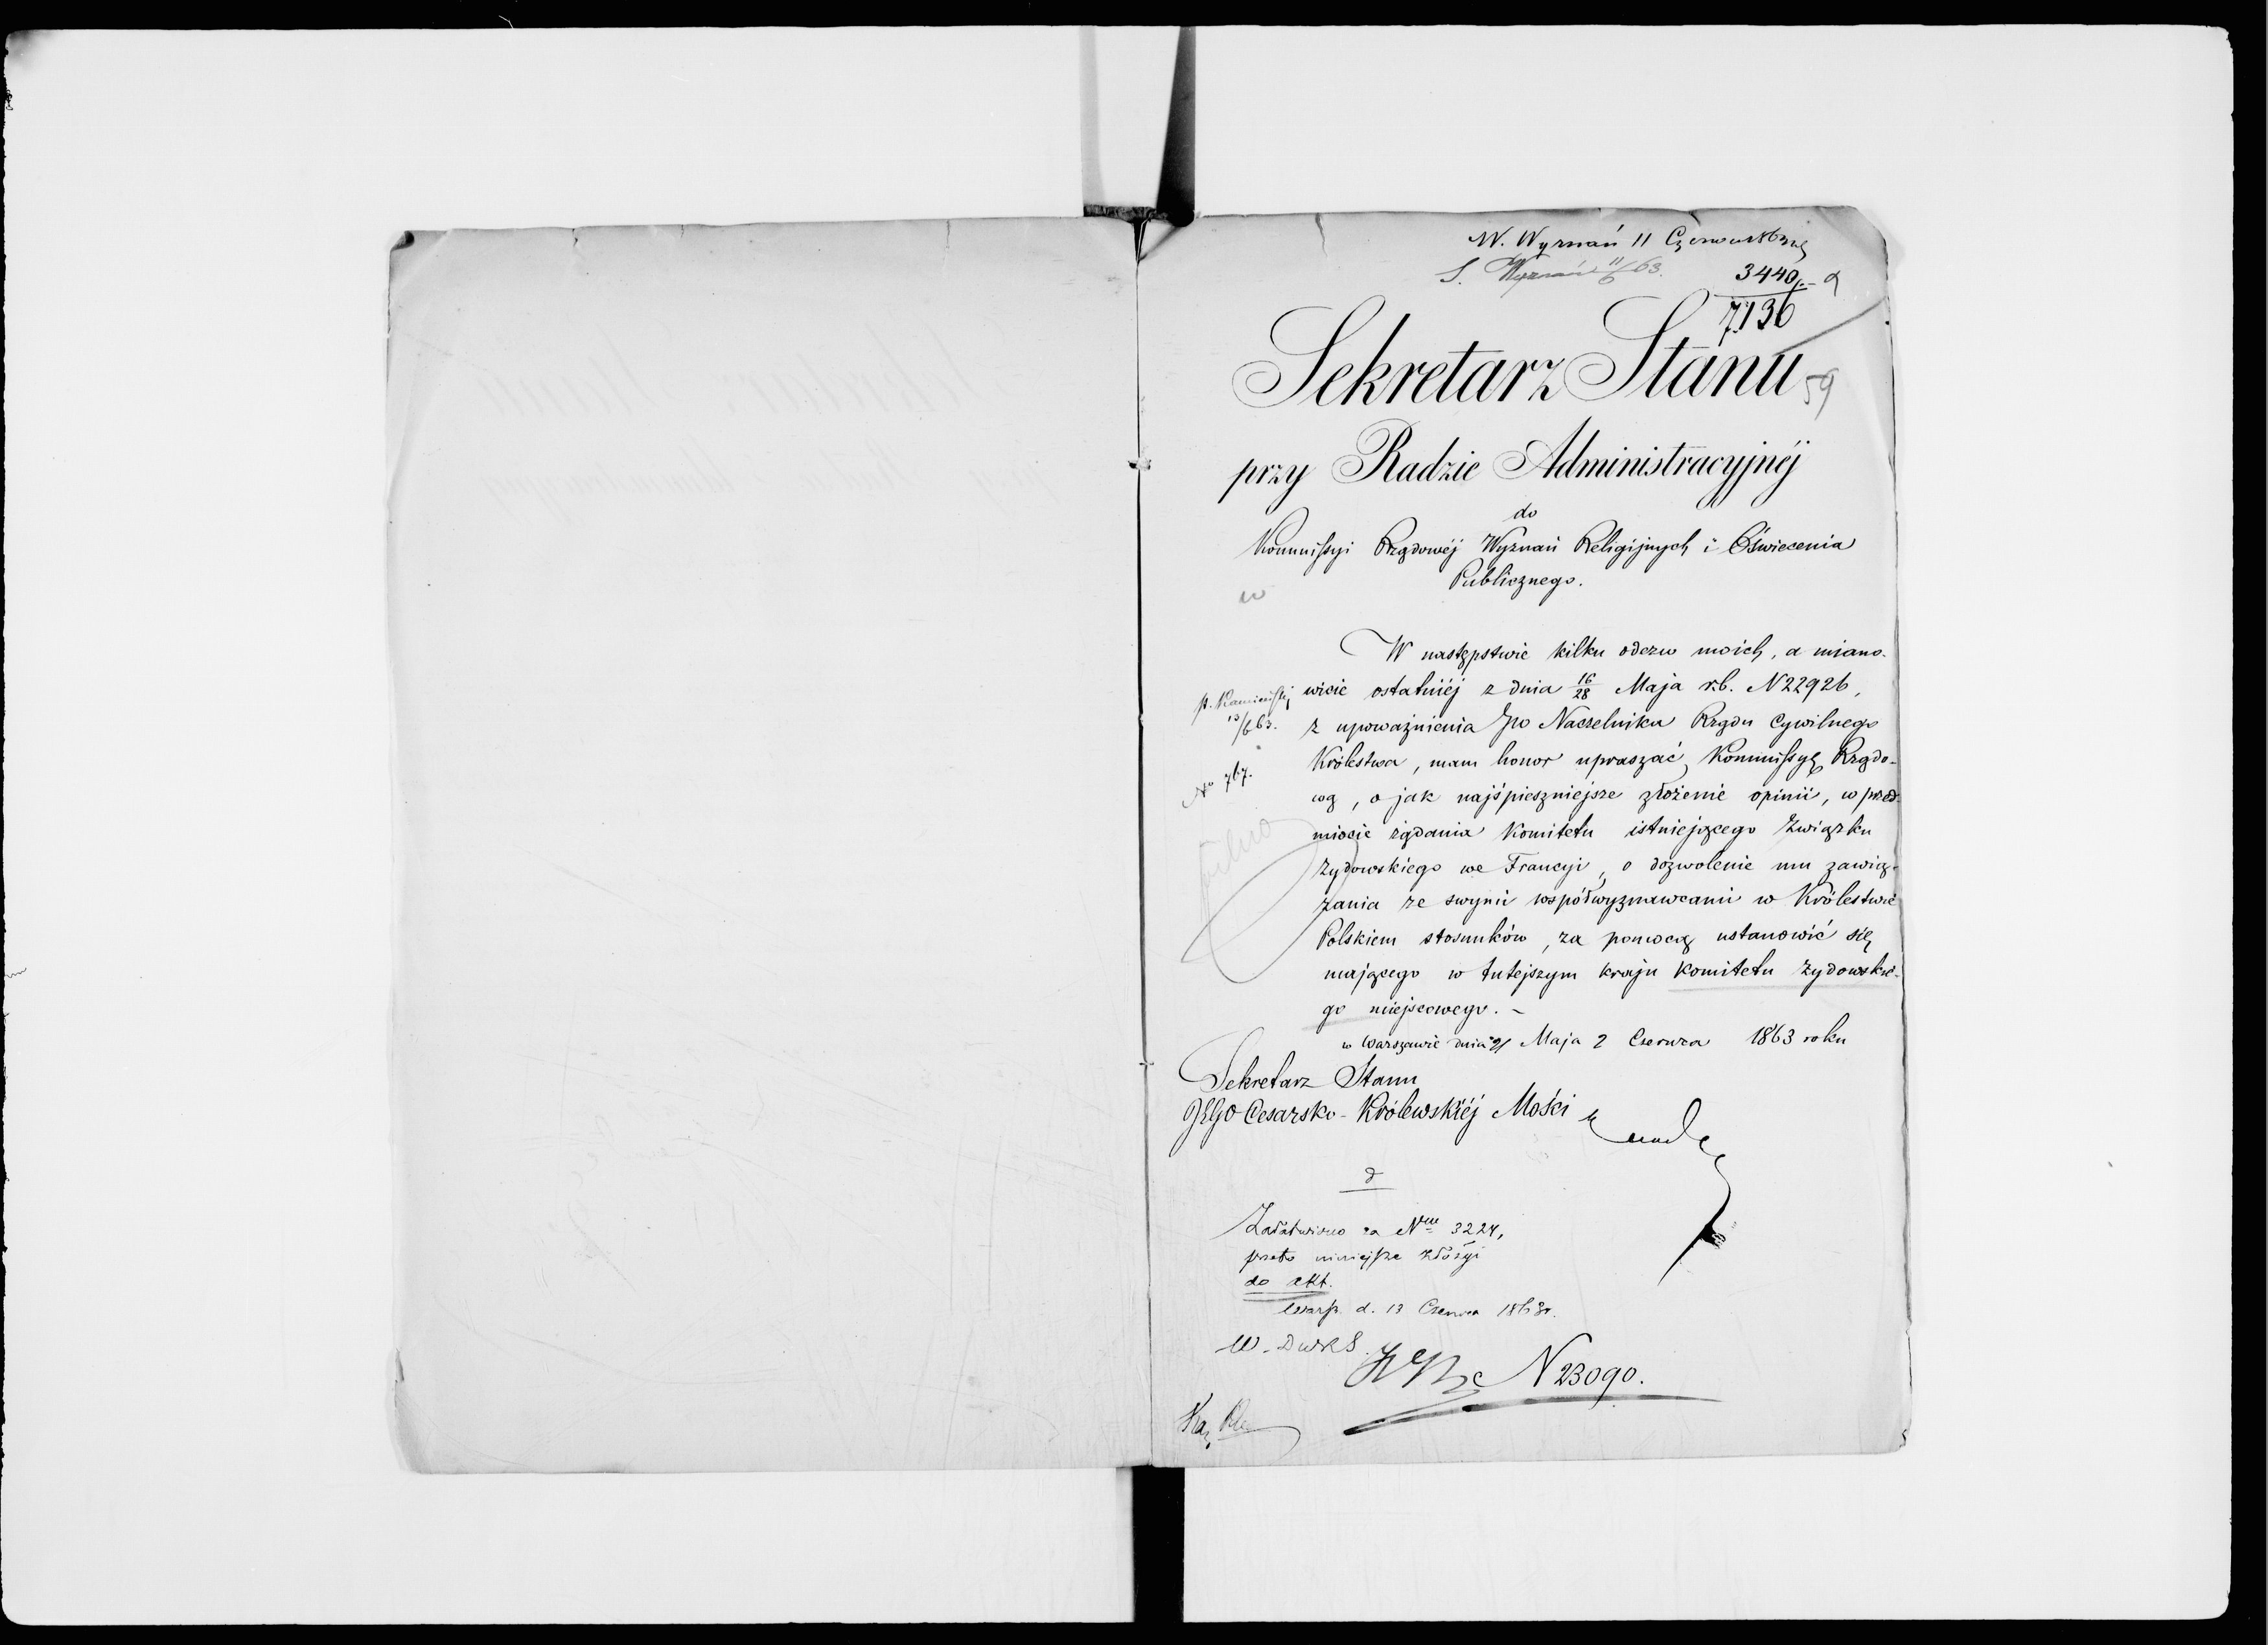 W. Wyznań 11 Czerwca 1863 r.
S. Wyznań 11/6 63.
3440
7136
59
Sekretarz Stanu
przy Radzie Administracyjnéj
do
Kommissyi Rządowéj Wyznań Religijnych i Oświecenia
Publicznego.
W następstwie kilku odezw moich, a miano-
wicie ostatniéj z dnia 16/28 Maja r.b. N 22926,
z upoważnienia JGo Naczelnika Rządu Cywilnego
Królestwa, mam honor upraszać Kommissyę Rządo-
wą, o jak najśpieszniejsze złożenie opinii, w przed-
miocie żądania Komitetu istniejącego Związku
Żydowskiego we Francyi, o dozwolenie mu zawią-
zania ze swymi współwyznawcami w Królestwie
Polskiem stosunków, za pomocą ustanowić się
mającego w tutejszym kraju Komitetu Żydowskie-
go miejscowego. -
p. Kamieński
13/6 63.
No 767.
pilno
w Warszawie dnia 21 Maja 2 Czerwca 1863 roku
Sekretarz Stanu
JEGO Cesarsko-Królewskiéj Mości
Załatwiono za Nrm 3224,
przeto niniejsze złożyć
do akt.
Warsz. d. 13 Czerwca 1863 r.
N 23090.